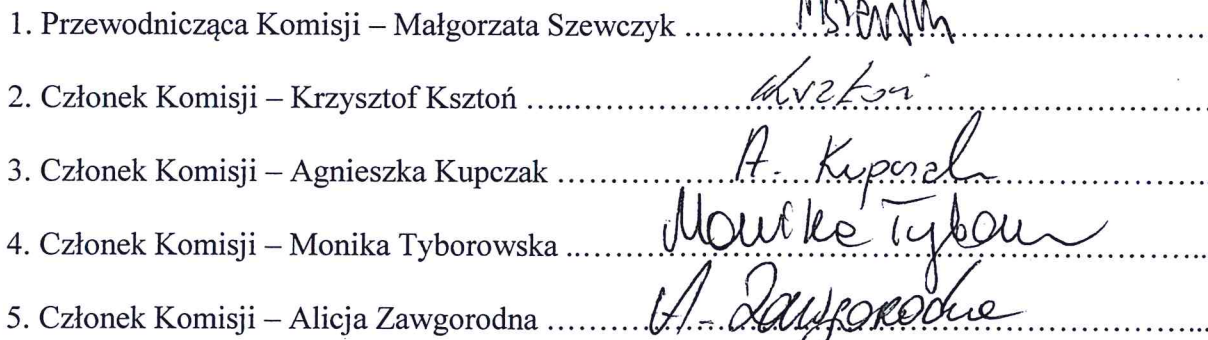 1. Przewodnicząca Komisji – Małgorzata Szewczyk ................................................
2. Członek Komisji – Krzysztof Ksztoń ................................................
3. Członek Komisji – Agnieszka Kupczak ................ A. Kupczak ................
4. Członek Komisji – Monika Tyborowska ................ Monika Tybor ................
5. Członek Komisji – Alicja Zawgorodna ................ A. Zawgorodna ................